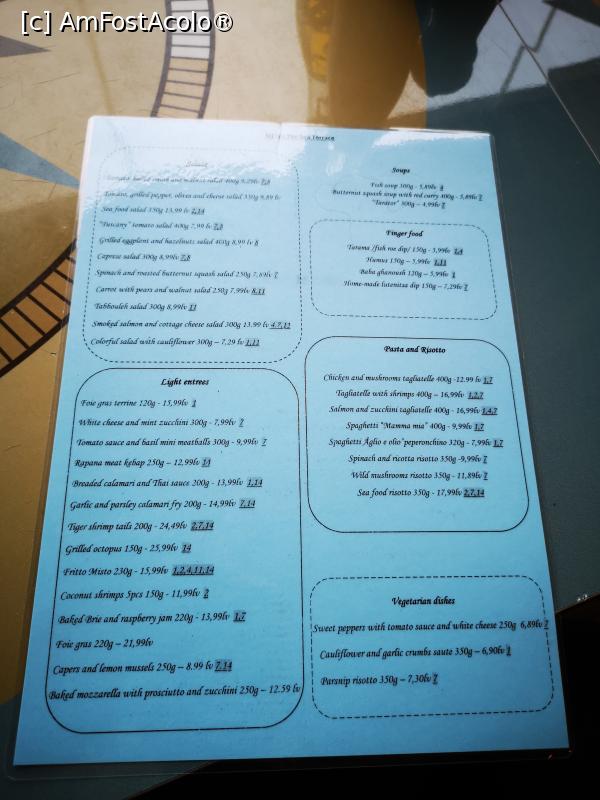 [c] AmFostAcolo®
Salads
Tomato, grilled pepper, olives and cheese salad 350g 9,89 lv
Sea food salad 350g 13,99 lv 2,14
"Tuscany" tomato salad 400g 7,99 lv 7,8
Grilled eggplant and hazelnuts salad 400g 8,99 lv 8
Caprese salad 300g 8,99lv 7,8
Spinach and roasted butternut squash salad 250g 7,89lv 7
Carrot with pears and walnut salad 250g 7,99lv 8,11
Tabbouleh salad 300g 8,99lv 11
Smoked salmon and cottage cheese salad 300g 13.99 lv 4,7,12
Colorful salad with cauliflower 300g – 7,29 lv 1,12
Light entrees
Foie gras terrine 120g - 15,99lv 1
White cheese and mint zucchini 300g - 7,99lv 7
Tomato sauce and basil mini meatballs 300g - 9,99lv 7
Rapana meat kebap 250g – 12,99lv 14
Breaded calamari and Thai sauce 200g - 13,99lv 1,14
Garlic and parsley calamari fry 200g - 14,99lv 7,14
Tiger shrimp tails 200g - 24,49lv 2,7,14
Grilled octopus 150g - 25,99lv 14
Fritto Misto 230g - 15,99lv 1,2,4,11,14
Coconut shrimps 5pcs 150g - 11,99lv 2
Baked Brie and raspberry jam 220g - 13,99lv 1,7
Foie gras 220g – 21,99lv
Capers and lemon mussels 250g – 8.99 lv 7,14
Baked mozzarella with prosciutto and zucchini 250g – 12.59 lv
Soups
Fish soup 300g - 5,89lv 4
Butternut squash soup with red curry 400g - 5,89lv 7
"Tarator" 300g – 4,99lv 7
Finger food
Tarama /fish roe dip/ 150g - 5,99lv 1,4
Humus 150g – 5,99lv 1,11
Baba ghanoush 120g – 5,99lv 1
Home-made lutenitsa dip 150g – 7,29lv 7
Pasta and Risotto
Chicken and mushrooms tagliatelle 400g -12.99 lv 1,7
Tagliatelle with shrimps 400g – 16,99lv 1,2,7
Salmon and zucchini tagliatelle 400g - 16,99lv 1,4,7
Spaghetti "Mamma mia" 400g - 9,99lv 1,7
Spaghetti Aglio e olio"peperonchino 320g - 7,99lv 1,7
Spinach and ricotta risotto 350g -9,99lv 7
Wild mushrooms risotto 350g - 11,89lv 7
Sea food risotto 350g - 17,99lv 2,7,14
Vegetarian dishes
Sweet peppers with tomato sauce and white cheese 250g 6,89lv 7
Cauliflower and garlic crumbs saute 350g – 6,90lv 1
Parsnip risotto 350g – 7,30lv 7